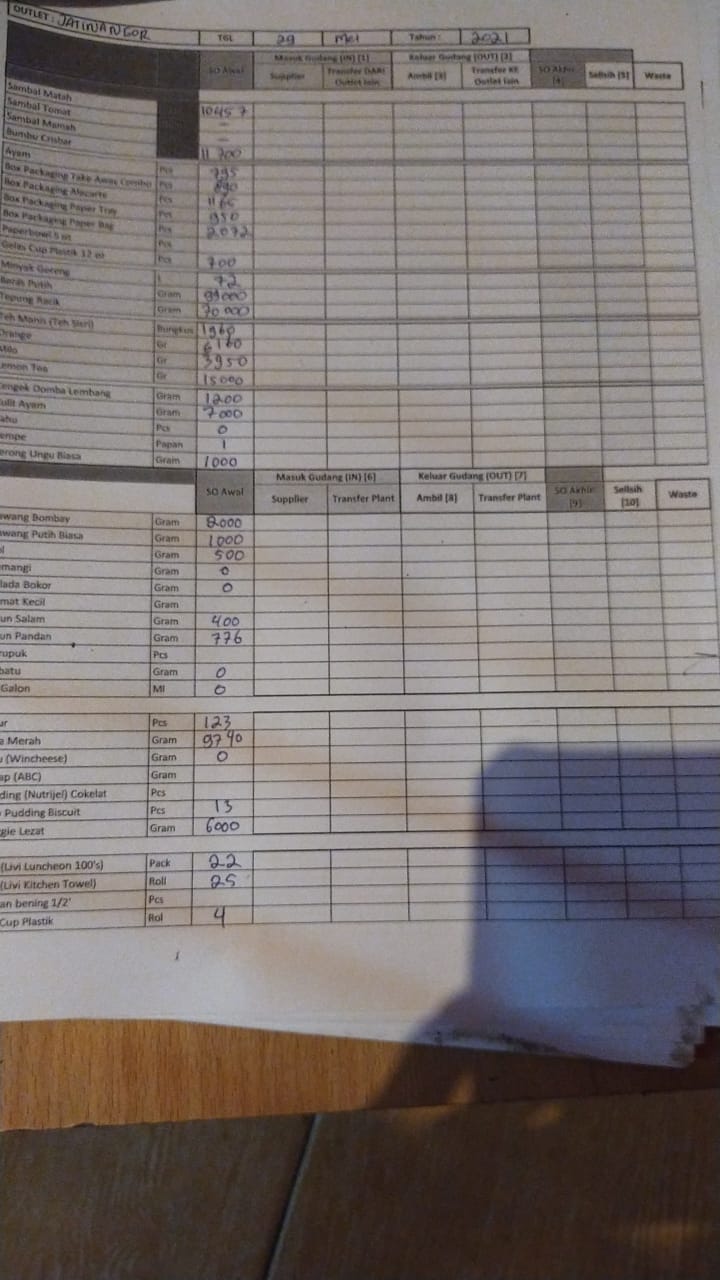 OUTLET : JATINANGOR TGL 29 Mei Tahun : 2021
SO Awal Masuk Gudang (IN) [1] Keluar Gudang (OUT) [2] SO Akhir [4] Selisih [5] Waste
Supplier Transfer DARI Outlet lain Ambil [3] Transfer KE Outlet lain
Sambal Matah
Sambal Tomat 10457
Sambal Mamah –
Bumbu Crisbar –
11 700
Ayam Pcs 795
Box Packaging Take Away Combo Pcs 890
Box Packaging Alacarte Pcs 1165
Box Packaging Paper Tray Pcs 950
Box Packaging Paper Bag Pcs 2072
Paperbowl 5 oz Pcs
Gelas Cup Plastik 12 oz Pcs 700
Minyak Goreng L 72
Beras Putih Gram 99000
Tepung Racik Gram 70 000
Teh Manis (Teh Sisri) Bungkus 1960
Orange Gr 6160
Milo Gr 3950
emon Tea Gr 15000
engek Domba Lembang Gram 1200
ulit Ayam Gram 7000
ahu Pcs 0
empe Papan 1
erong Ungu Biasa Gram 1000
SO Awal Masuk Gudang (IN) [6] Keluar Gudang (OUT) [7] SO Akhir [9] Selisih [10] Waste
Supplier Transfer Plant Ambil [8] Transfer Plant
awang Bombay Gram 2000
awang Putih Biasa Gram 1000
l Gram 500
mangi Gram 0
lada Bokor Gram 0
mat Kecil Gram
un Salam Gram 400
un Pandan Gram 776
rupuk Pcs
batu Gram 0
Galon Ml 0
ur Pcs 123
a Merah Gram 9740
u (Wincheese) Gram 0
ap (ABC) Gram
ding (Nutrijel) Cokelat Pcs
Pudding Biscuit Pcs 13
gie Lezat Gram 6000
(Livi Luncheon 100's) Pack 22
(Livi Kitchen Towel) Roll 25
an bening 1/2' Pcs
Cup Plastik Rol 4